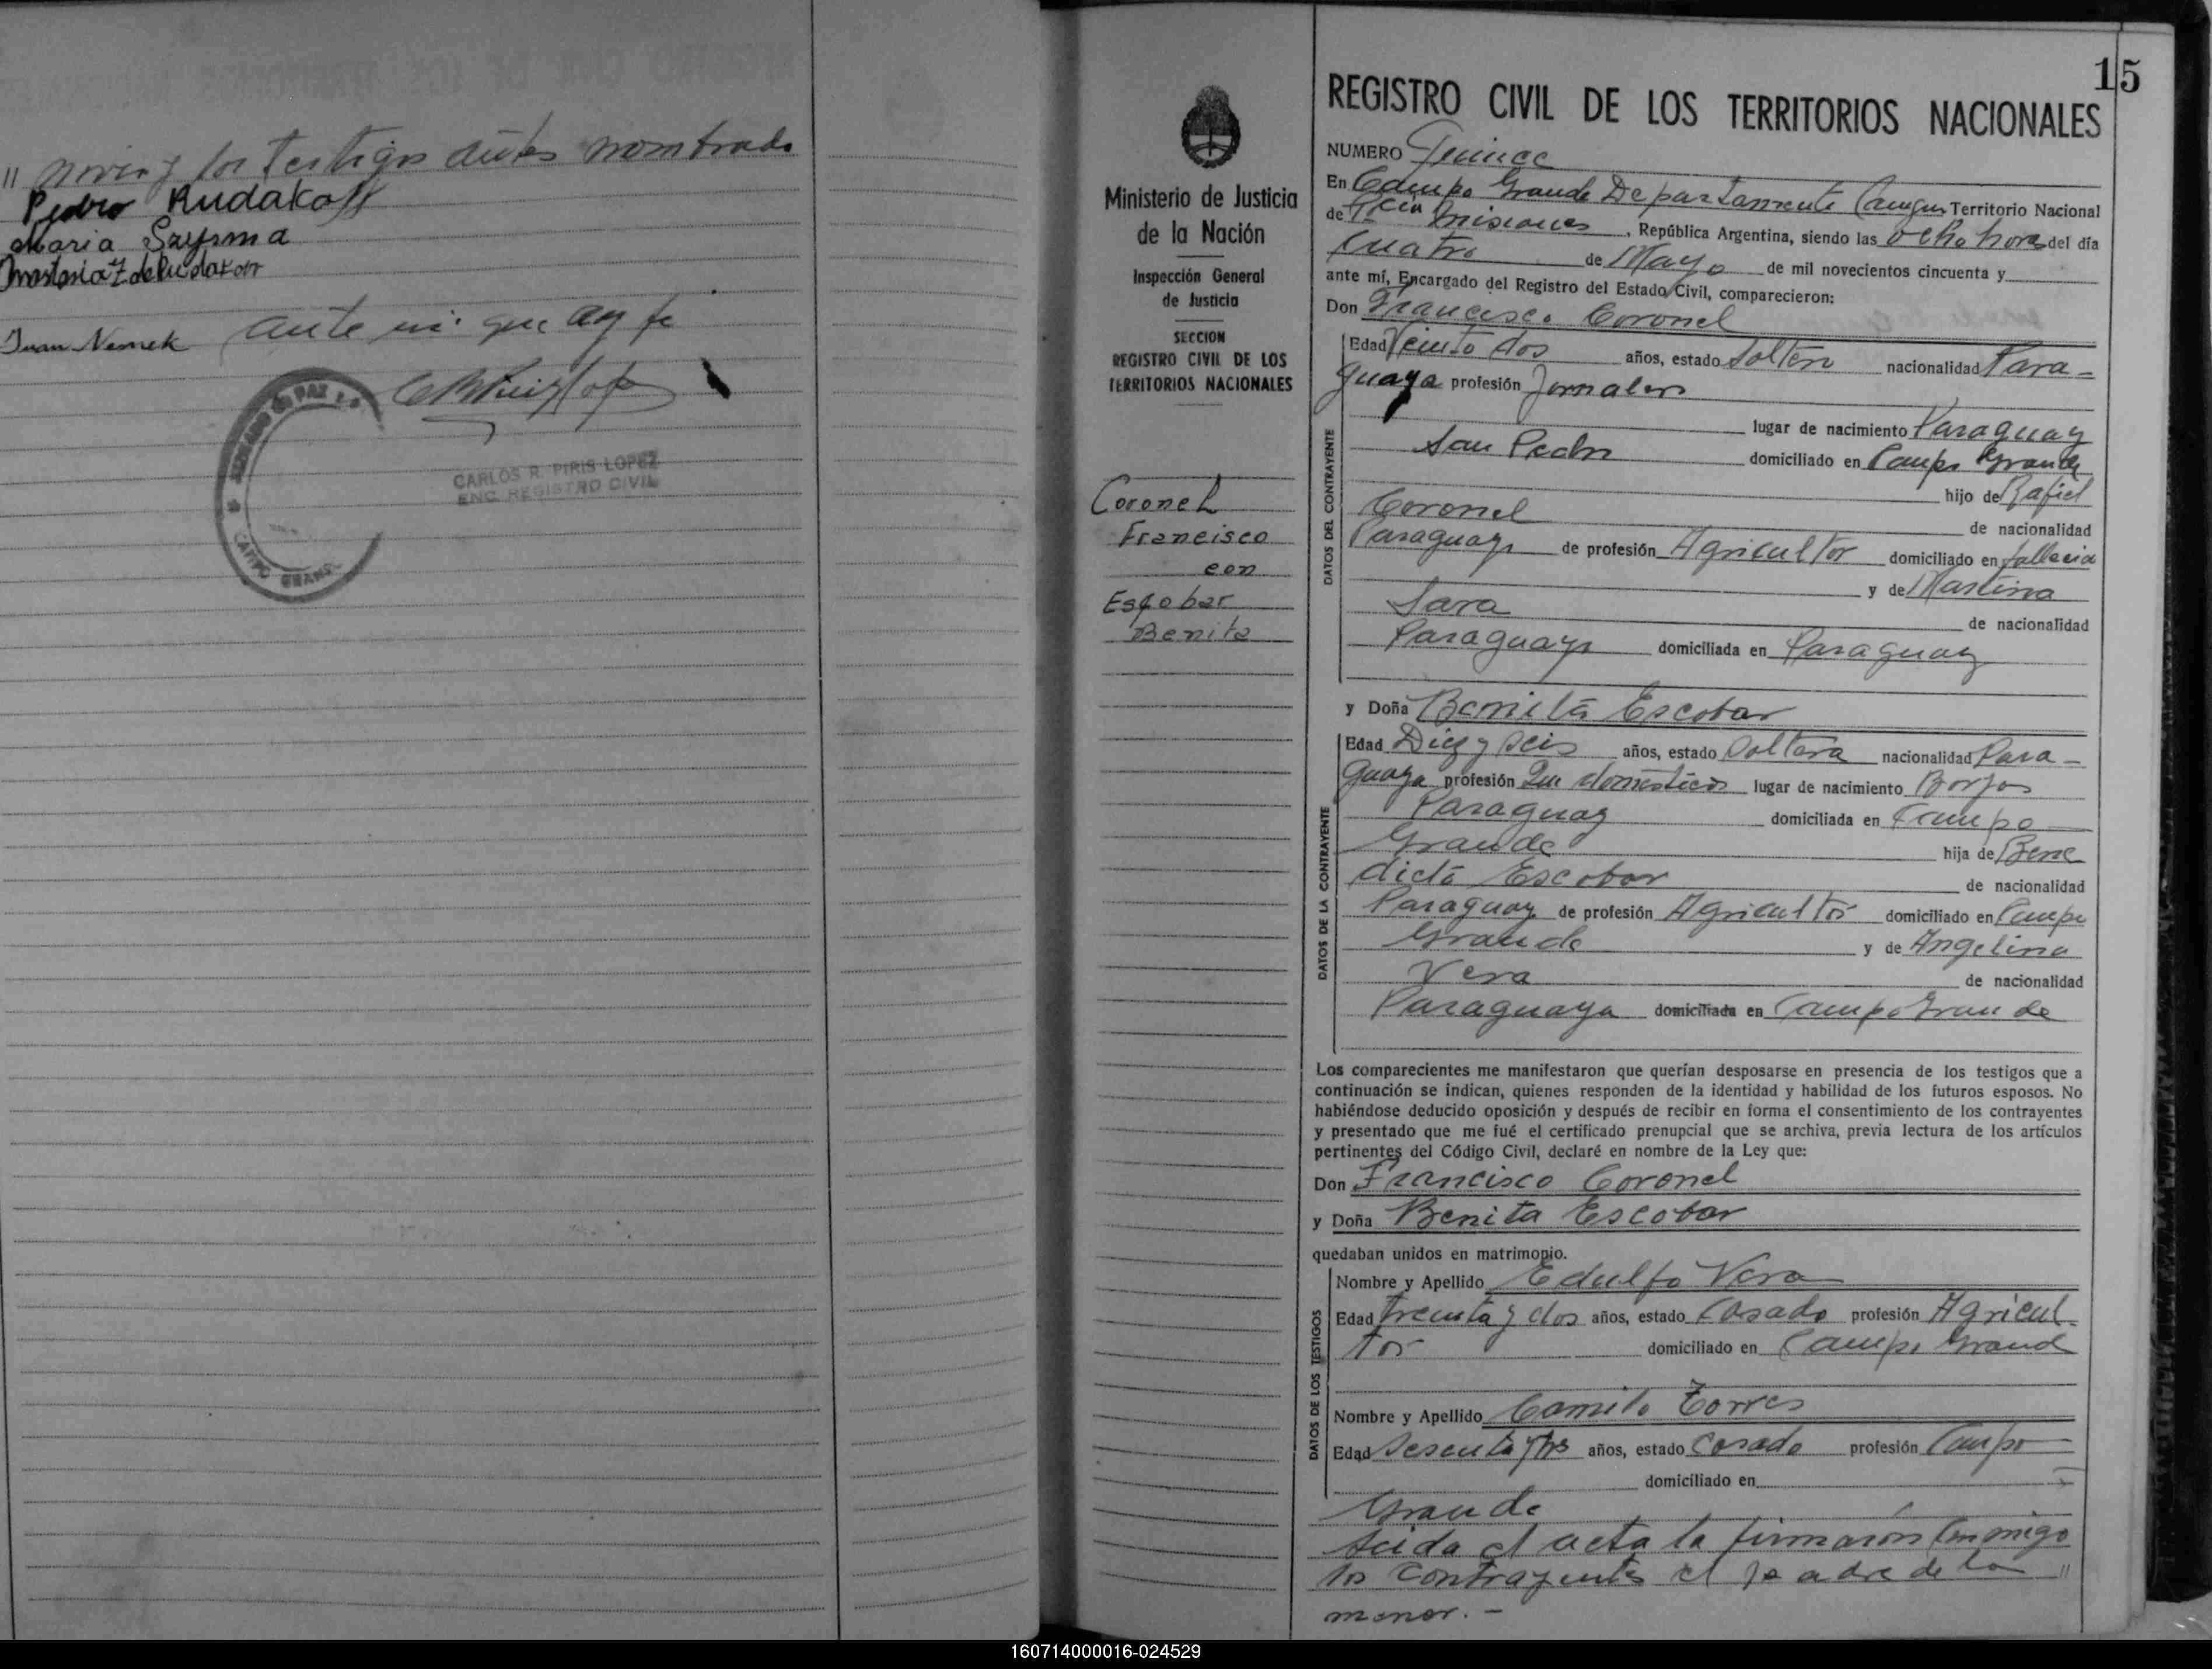 " novios y los testigos antes nombrado
Pedro Rudakoff
Maria Szysma
Anastasia Z de Rudakoff
Juan Nemek ante mi que doy fe
JUZGADO DE PAZ
CAMPO GRANDE
CARLOS R. PIRIS LOPEZ
ENC. REGISTRO CIVIL
15
Ministerio de Justicia
de la Nación
Inspección General
de Justicia
SECCION
REGISTRO CIVIL DE LOS
TERRITORIOS NACIONALES
Coronel
Francisco
con
Escobar
Benita
REGISTRO CIVIL DE LOS TERRITORIOS NACIONALES
NUMERO Quince
En Campo Grande Departamento Caingus Territorio Nacional
de Misiones, República Argentina, siendo las ocho horas del día
Cuatro de Mayo de mil novecientos cincuenta y
ante mí, Encargado del Registro del Estado Civil, comparecieron:
Don Francisco Coronel
DATOS DEL CONTRAYENTE
Edad Veinto dos años, estado Soltero nacionalidad Para-
guaya profesión Jornalero
lugar de nacimiento Paraguay
San Pedro domiciliado en Campo Grande
hijo de Rafiel
Coronel de nacionalidad
Paraguayo de profesión Agricultor domiciliado en fallecido
y de Martina
Sara de nacionalidad
Paraguaya domiciliada en Paraguay
y Doña Benita Escobar
DATOS DE LA CONTRAYENTE
Edad Diez y seis años, estado Soltera nacionalidad Para-
guaya profesión Que domésticos lugar de nacimiento Borjas
Paraguay domiciliada en Campo
Grande hija de Bene
dicto Escobar de nacionalidad
Paraguay de profesión Agricultor domiciliado en Campo
Grande y de Angelina
Vera de nacionalidad
Paraguaya domiciliada en Campo Grande
Los comparecientes me manifestaron que querían desposarse en presencia de los testigos que a
continuación se indican, quienes responden de la identidad y habilidad de los futuros esposos. No
habiéndose deducido oposición y después de recibir en forma el consentimiento de los contrayentes
y presentado que me fué el certificado prenupcial que se archiva, previa lectura de los artículos
pertinentes del Código Civil, declaré en nombre de la Ley que:
Don Francisco Coronel
y Doña Benita Escobar
quedaban unidos en matrimonio.
DATOS DE LOS TESTIGOS
Nombre y Apellido Edulfo Vera
Edad treinta y dos años, estado Casado profesión Agricul-
tor domiciliado en Campo Grand
Nombre y Apellido Camilo Torres
Edad Sesenta y tres años, estado Casado profesión Campo
domiciliado en
Grande
Leida el acta la firmaron conmigo
los contrayentes el padre de la "
menor. -
160714000016-024529